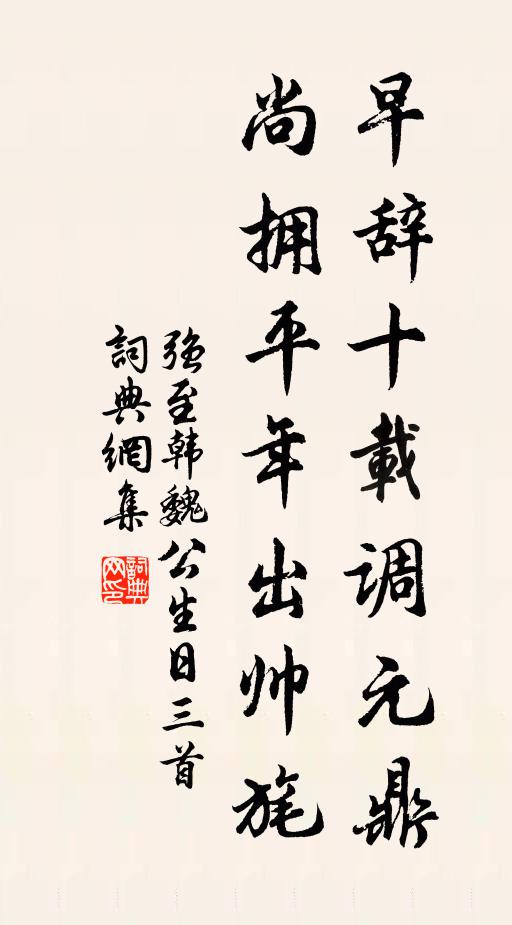 早辞十載调元鼎
尚拥平年出帅旄
强至韩魏公生日三首
詞典網集
詞典网印